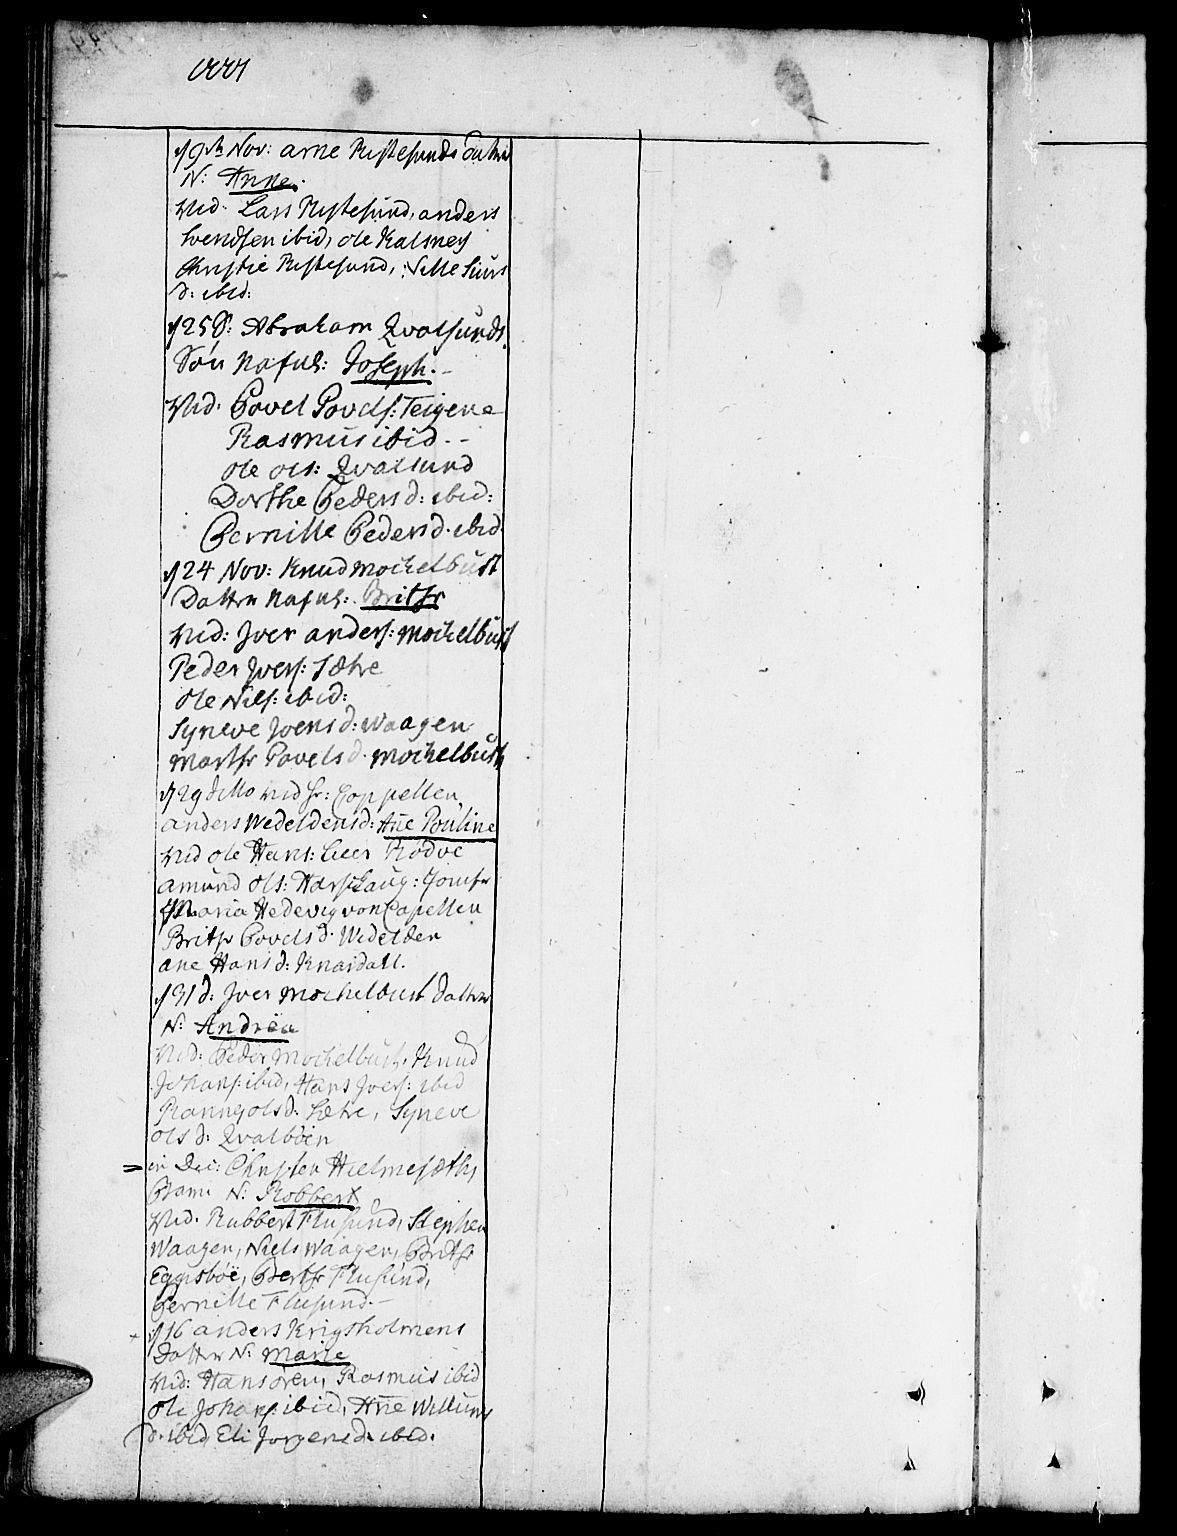 19de Nov: arne Rystesunds datter
N: Anne.
Vid: Lars Rystesund, anders
Svendsen ibid, ole Kalsnes
Christie Rystesund, Sille Siurs
d: ibid:
25 d: Abraham Qvalsunds
Søn Nafnl: Joseph.
Vid: Povel Povels: Teigene
Rasmus ibid
ole ols: Qvalsund
Dorthe Peders d: ibid:
Pernille Peders d. ibid.
24 Nov: Knud Mochelbust
Datter Nafnl: Brithe
Vid: Iver anders: Mochelbust
Peder Ivers: Sætre
ole Nils: ibid:
Syneve Joens d: Waagen
Marthe Povels d. Mochelbust
29 ditto ved hr: Coppellen
anders Wedeldens d: Ane Pouline
Vid ole Hans: Leer Rødve
amund ols: Jomfr
Maria Hedevig von Capellen
Brithe Povels d. Wedelden
ane Hans d: Knardall.
31 d: Iver Mochelbust datter
N: Andrea
Vid: Peder Mochelbust, Knud
Johans: ibid, Hans Ivers: ibid
Ranneg ols d. Sætre, Syneve
ols d: Qvalbøen
in Dec: Christen Hielmesæths
Barn N: Robbert
Vid: Rubbert Flusund, Stephen
Waagen, Niels Waagen, Brithe
Eggesbøe, Berthe Flusund,
Pernille Flusund.
16 anders Krigsholmens
Datter N: Marie
Vid: Hans Rasmus ibid
ole Johans: ibid, Ane Willums
d. ibid Eli Jørgens d. ibid.